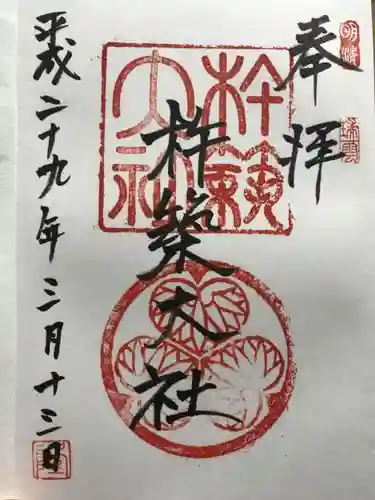 奉拝
杵築大社
杵築
大社
平成二十九年三月十二日